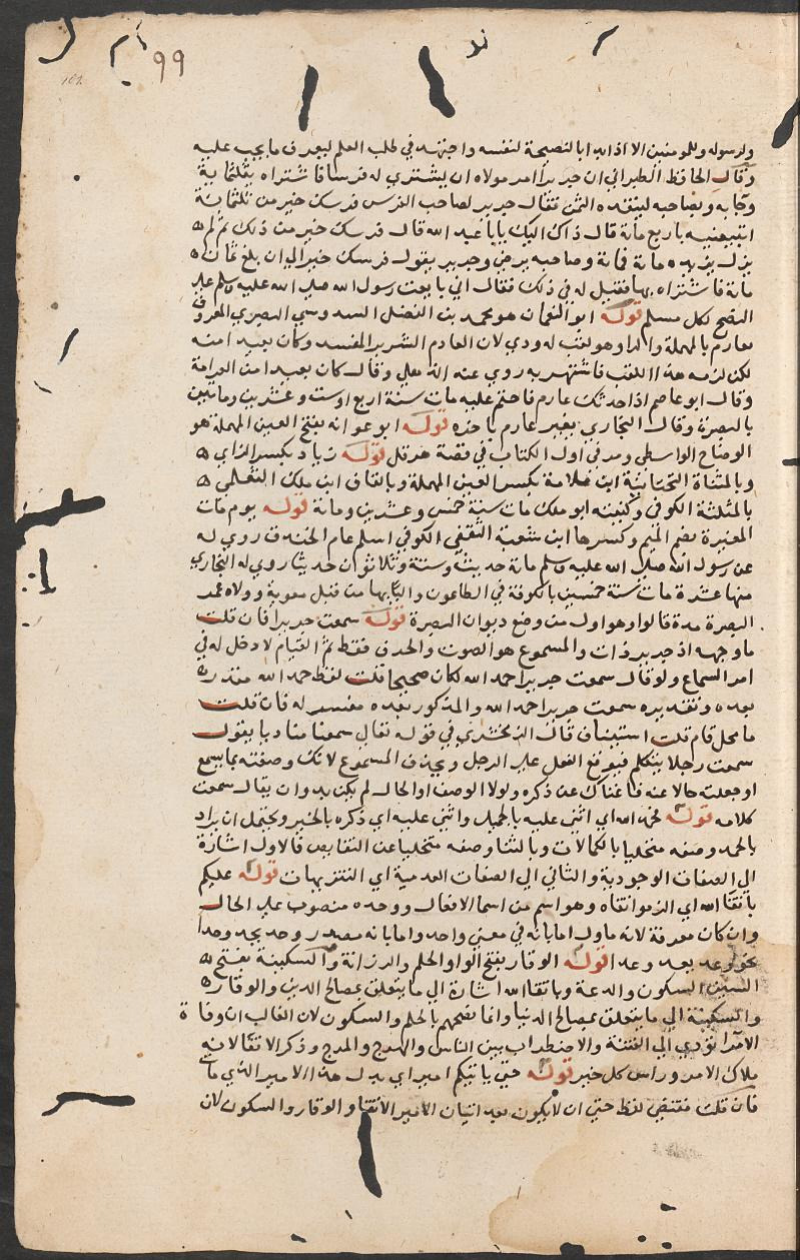 99
ولرسوله وللمومنين الا اذا بدا بالنصيحة لنفسه واجتهد في طلب العلم ليعرف ما يجب عليه
وقال الحافظ الطبراني ان جريرا امر مولاه ان يشتري له فرسا فاشتراه بثلثماية
وجا به وبصاحبه لينقده الثمن فقال جرير لصاحب الفرس فرسك خير من ثلثماية
اتبيعنيه باربع مائة قال ذاك اليك يا با عبد الله قال فرسك خير من ذلك ثم لم
يزل يزيده مائة فمائة وصاحبه يرضي وجرير يقول فرسك خير الي ان بلغ ثمان
مائة فاشتراه بها فقيل له في ذلك فقال اني بايعت رسول الله صلي الله عليه وسلم علي
النصح لكل مسلم قوله ابو النعمان هو محمد بن الفضل السدوسي البصري المعروف
بعارم بالمهملة والرا وهو لقب له ردي لان العارم الشرير المفسد وكان بعيدا منه
لكن لزمه هذا اللقب فاشتهر به روي عنه الذهلي وقال كان بعيدا من العرامة
وقال ابو حاتم اذا حدثك عارم فاختم عليه مات سنة اربع او ست وعشرين ومايتين
بالبصرة وقال البخاري تغير عارم باخره قوله ابو عوانه بفتح العين المهملة هو
الوضاح الواسطي ومر في اول الكتاب في قصة هرقل قوله زياد بكسر الزاي
وبالمثناة التحتانية ابن علاقة بكسر العين المهملة وبالقاف ابن ملك الثعلبي
بالمثلثة الكوفي وكنيته ابو ملك مات سنة خمس وعشرين ومائة قوله يوم مات
المغيرة بضم الميم وكسرها ابن شعبة الثقفي الكوفي اسلم عام الخندق روي له
عن رسول الله صلي الله عليه وسلم مائة حديث وستة وثلاثون حديثا روي له البخاري
منها عشرة مات سنة خمسين بالكوفة في الطاعون واليا بها من قبل معوية وولاه عمر
البصرة مدة قالوا وهو اول من وضع ديوان البصرة قوله سمعت جريرا فان قلت
ما وجهه اذ جرير ذات والمسموع هو الصوت والحرف فقط ثم القيام لا دخل له في
امر السماع ولو قال سمعت جريرا حمد الله لكان صحيحا قلت لفظ حمد الله مقدر
بعده وتقديره سمعت جريرا حمد الله والمذكور بعده مفسر له فان قلت
ما محل قام قلت استيناف قال الزمخشري في قوله تعالي سمعنا مناديا يقول
سمعت رجلا يتكلم فيوقع الفعل علي الرجل ويحذف المسموع لانك وصفته بما يسمع
او جعلته حالا عنه فاغناك عن ذكره ولولا الوصف او الحال لم يكن بد وان يقال سمعت
كلامه قوله فحمد الله اي اثني عليه بالجميل واثني عليه اي ذكره بالخير ويحتمل ان يراد
بالحمد وصفه متحليا بالكمالات وبالثنا وصفه متخليا عن النقايص فالاول اشارة
الي الصفات الوجودية والثاني الي الصفات العدمية اي التنزيهات قوله عليكم
باتقا الله اي الزموا اتقاه وهو اسم من اسما الافعال ووحده منصوب علي الحال
وان كان معرفة لانه ماول اما بانه في معني واحد واما بانه مصدر وحد يحد وحدا
نحو وعد يعد وعدا قوله الوقار بفتح الواو الحلم والرزانة والسكينة بفتح
السين السكون والدعة وباتقا الله اشارة الي ما يتعلق بمصالح الدين والوقار
والسكينة الي ما يتعلق بمصالح الدنيا وانما نصحهم بالحلم والسكون لان الغالب ان وفاة
الامرا تؤدي الي الفتنة والاضطراب بين الناس والهرج والمرج وذكر الاتقا لانه
ملاك الامر وراس كل خير قوله حتي ياتيكم امير اي بدل هذا الامير الذي مات
فان قلت مقتضي لفظ حتي ان لا يكون بعد اتيان الامير الاتقا والوقار والسكون لان